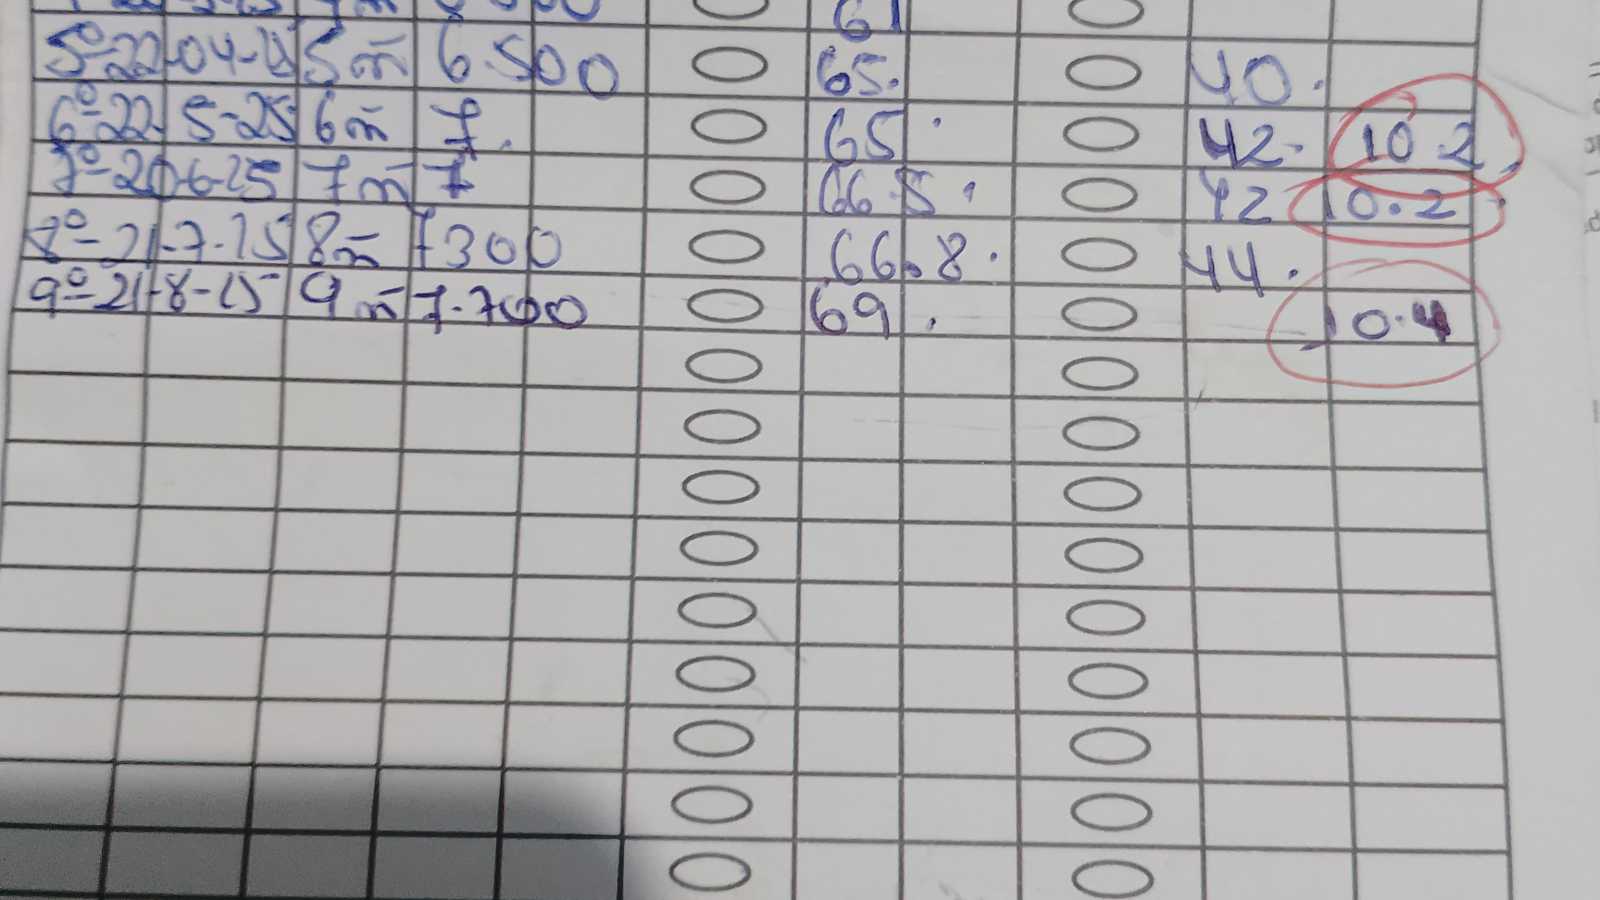 61
5º-22-04-25 5m 6.500 65. 40.
6º-22-5-25 6m 7. 65. 42. 10.2
7º-20-6-25 7m 7 66.5. 42 10.2
8º-21-7-25 8m 7300 66.8. 44.
9º-21-8-25 9m 7.700 69. 10.4